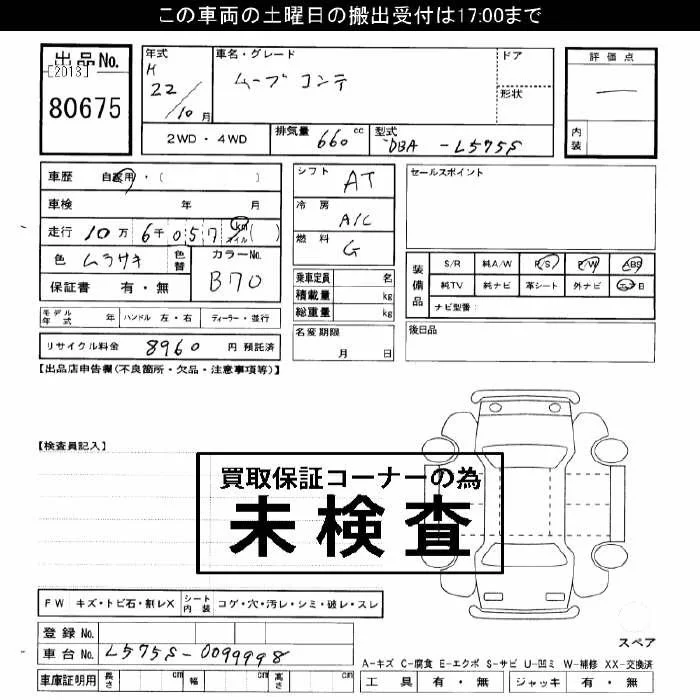 この車両の土曜日の搬出受付は17:00まで
出品No.
[2013]
80675
年式
H
22
/10月
車名・グレード
ムーブ コンテ
ドア
形状
評価点
―
内装
2WD・4WD
排気量 660 cc
型式 DBA - L575S
車歴 自家用・( )
車検 年 月
走行 10万 6千 0 5 7 km マイル ( )
色 ムラサキ 色替
カラーNo.
B70
保証書 有・無
シフト AT
冷房 A/C
燃料 G
セールスポイント
乗車定員 名
積載量 kg
総重量 kg
装備品
S/R 純A/W P/S P/W ABS
純TV 純ナビ 革シート 外ナビ
ナビ型番:
モデル年式 年 ハンドル 左・右 ディーラー・並行
名変期限
月 日
後日品
リサイクル料金 8960 円 預託済
【出品店申告欄(不良箇所・欠品・注意事項等)】
【検査員記入】
買取保証コーナーの為
未検査
FW キズ・トビ石・割レX シート内装 コゲ・穴・汚レ・シミ・破レ・スレ
登録No.
スペア
車台No. L575S-0099998
A-キズ C-腐食 E-エクボ S-サビ U-凹ミ W-補修 XX-交換済
車庫証明用 長さ cm 幅 cm 高さ cm
工具 有・無 ジャッキ 有・無